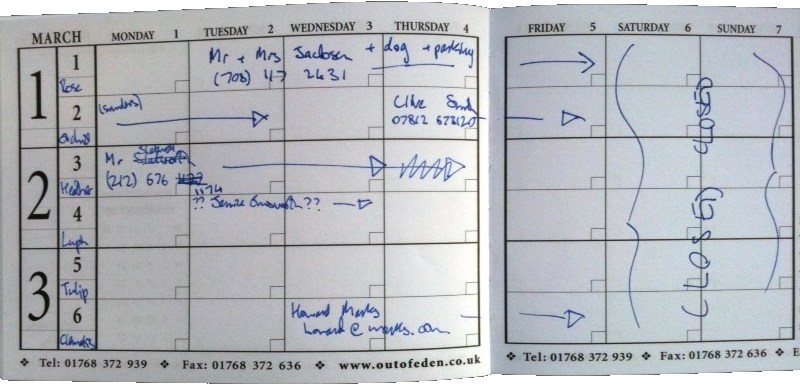 MARCH MONDAY 1 TUESDAY 2 WEDNESDAY 3 THURSDAY 4 FRIDAY 5 SATURDAY 6 SUNDAY 7
1
1 Mr + Mrs Jackson + dog + parking
Rose (708) 47 2431
2 (Sanders) Clive Smith
Orchid 07812 678120
2
3 Mr
Heather (212) 676 1174
4 ?? Janice ??
3
5
Tulip
6 Howard Marks
howard@marks.com
CLOSED CLOSED
❖ Tel: 01768 372 939 ❖ Fax: 01768 372 636 ❖ www.outofeden.co.uk ❖ Tel: 01768 372 939 ❖ Fax: 01768 372 636 ❖ E